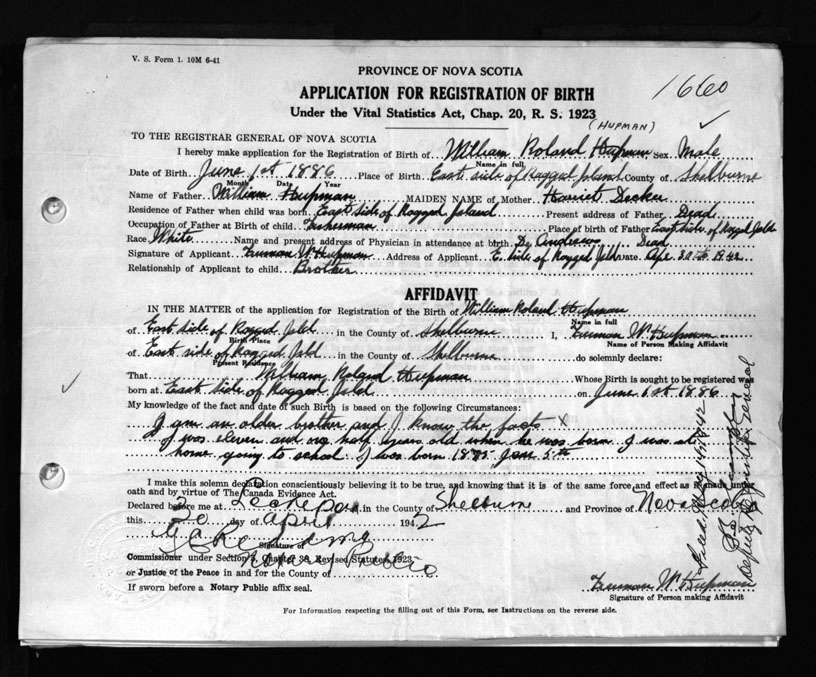 V. S. Form 1. 10M 6-41
PROVINCE OF NOVA SCOTIA
1660
APPLICATION FOR REGISTRATION OF BIRTH
Under the Vital Statistics Act, Chap. 20, R. S. 1923
(HUPMAN)
TO THE REGISTRAR GENERAL OF NOVA SCOTIA
I hereby make application for the Registration of Birth of William Roland Hupman Sex Male
Name in full
Date of Birth June 1st 1886 Place of Birth East side of Ragged Island County of Shelburne
Month Date Year
Name of Father William Hupman MAIDEN NAME of Mother Harriet Decker
Residence of Father when child was born East side of Ragged Island Present address of Father Dead
Occupation of Father at Birth of child Fisherman Place of birth of Father East side of Ragged Isld
Race White Name and present address of Physician in attendance at birth Dr Andrews Dead
Signature of Applicant Truman W Hupman Address of Applicant E. side of Ragged Isld Date Apr. 30th 1942
Relationship of Applicant to child Brother
AFFIDAVIT
IN THE MATTER of the application for Registration of the Birth of William Roland Hupman
Name in full
of East side of Ragged Isld in the County of Shelburne I, Truman W Hupman
Birth Place Name of Person Making Affidavit
of East side of Ragged Isld in the County of Shelburne do solemnly declare:
Present Residence
That William Roland Hupman Whose Birth is sought to be registered was
born at East side of Ragged Isld on June 1st 1886
My knowledge of the fact and date of such Birth is based on the following Circumstances:
I am an older brother and I know the facts X
I was eleven and one half years old when he was born. I was at
home going to school. I was born 1875 Jan 5th
I make this solemn declaration conscientiously believing it to be true, and knowing that it is of the same force and effect as if made under
oath and by virtue of The Canada Evidence Act.
Declared before me at Lockeport in the County of Shelburne and Province of Nova Scotia
this 30 day of April 1942
Signature of
Commissioner under Section Chapter 38, Revised Statutes, 1923
Notary Public
or Justice of the Peace in and for the County of
If sworn before a Notary Public affix seal.
Truman W Hupman
Signature of Person making Affidavit
For Information respecting the filling out of this Form, see Instructions on the reverse side.
Filed May 14 1942
Deputy Registrar General